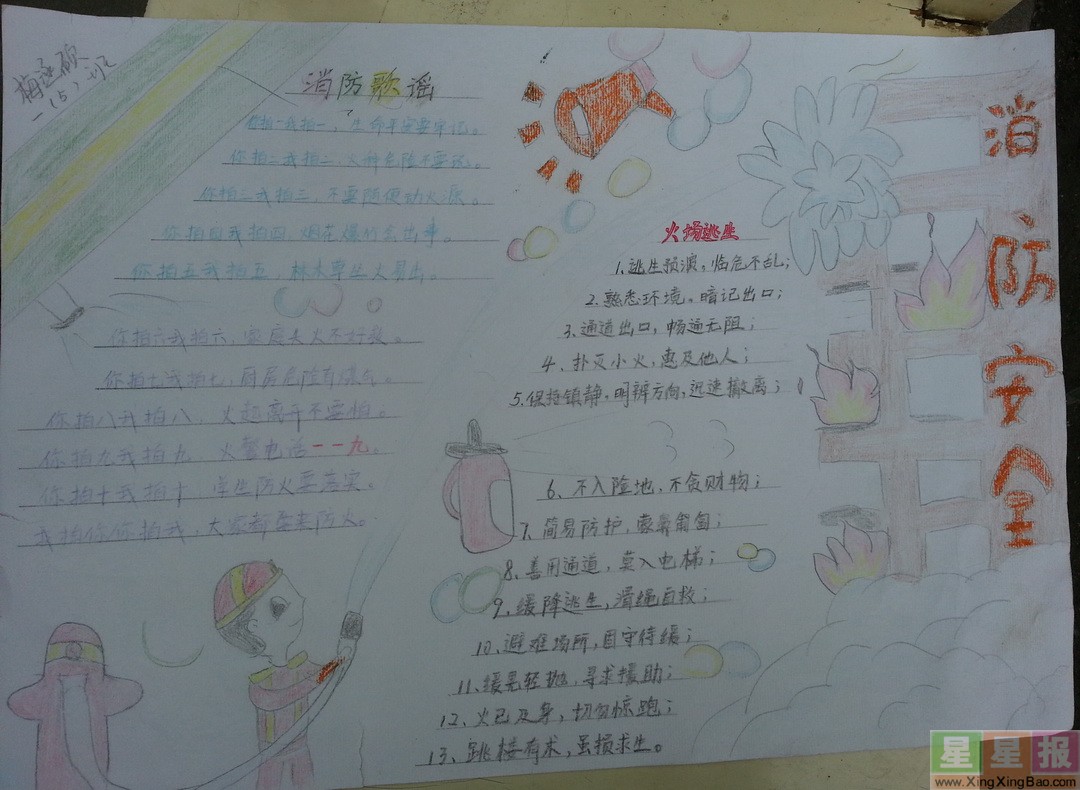 梅
一(5)班
消防歌谣
你拍一我拍一，生命平安要牢记。
你拍二我拍二，火种危险不要玩。
你拍三我拍三，不要随便动火源。
你拍四我拍四，烟花爆竹会出事。
你拍五我拍五，林木草丛火易出。
你拍六我拍六，家庭去火不
你拍七我拍七，厨房危险有煤气。
你拍八我拍八，火起离开不要怕。
你拍九我拍九，火警电话一一九。
你拍十我拍十，学生防火要落实。
我拍你你拍我，大家都要来防火。
火场逃生
1、逃生预演，临危不乱；
2、熟悉环境。暗记出口；
3、通道出口，畅通无阻；
4、扑灭小火，惠及他人；
5、保持镇静，明辨方向，迅速撤离；
6、不入险地，不贪财物；
7、简易防护，蒙鼻匍匐；
8、善用通道，莫入电梯；
9、缓降逃生，滑绳自救；
10、避难场所，固守待缓；
11、缓晃轻抛，寻求援助；
12、火已及身，切勿惊跑；
13、跳楼有术，虽损求生。
消防安全
星星报
www.XingXingBao.com